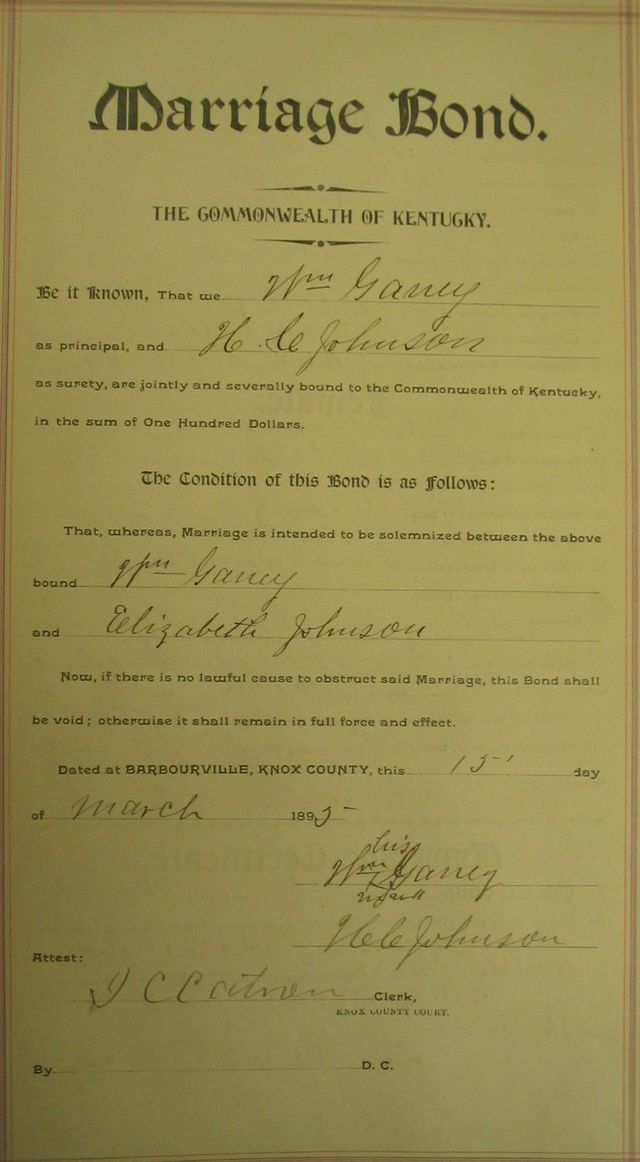 Marriage Bond.
THE COMMONWEALTH OF KENTUCKY.
Be it Known, That we Wm Ganey
as principal, and H. C Johnson
as surety, are jointly and severally bound to the Commonwealth of Kentucky,
in the sum of One Hundred Dollars.
The Condition of this Bond is as Follows:
That, whereas, Marriage is intended to be solemnized between the above
bound Wm Ganey
and Elizabeth Johnson
Now, if there is no lawful cause to obstruct said Marriage, this Bond shall
be void; otherwise it shall remain in full force and effect.
Dated at BARBOURVILLE, KNOX COUNTY, this 15 day
of March 1895
his
Wm X Ganey
mark
H C Johnson
Attest:
C Catron Clerk,
KNOX COUNTY COURT.
By D. C.